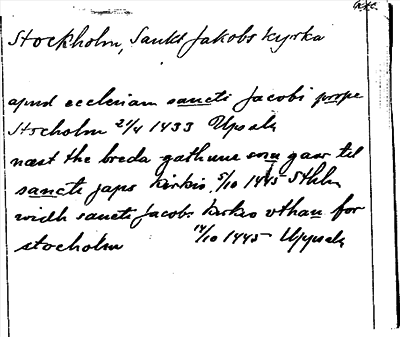 Stockholm, Sankt Jakobs kyrka
apud ecclesiam sancti Jacobi prope
Stocholm 21/4 1433 Upsala
næst the breda gathune som gaar til
sancti japs kirkio 5/10 1445 Sthlm
widh sancti Jacobs kirkio vthan for
stocholm 14/10 1445 Uppsala